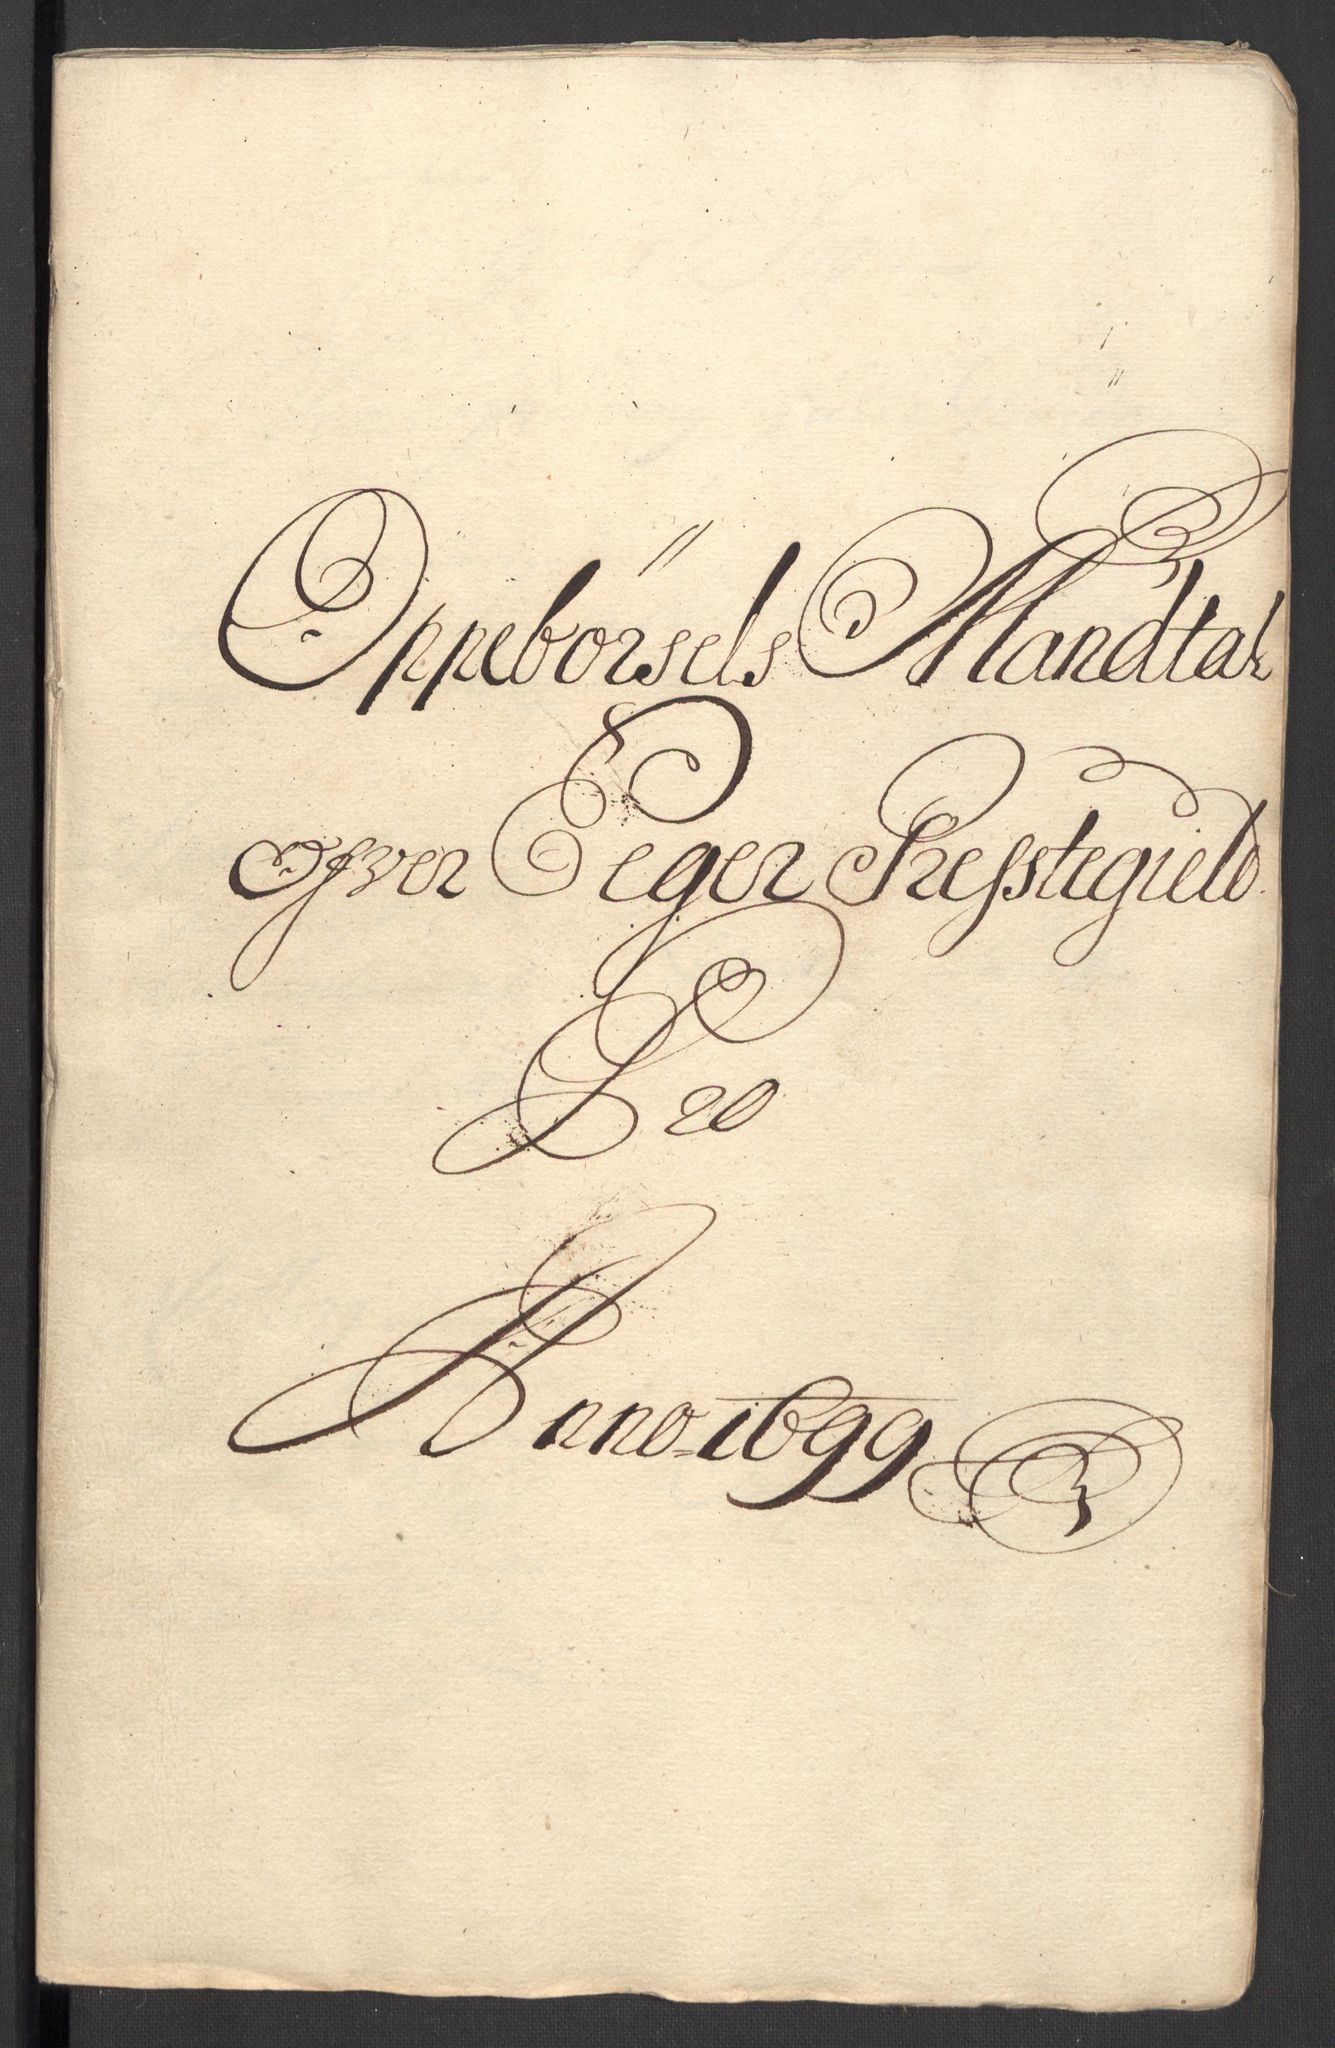 Oppebörsels Mandtal
ofver Eeger Presstegield
Pro
Anno 1699